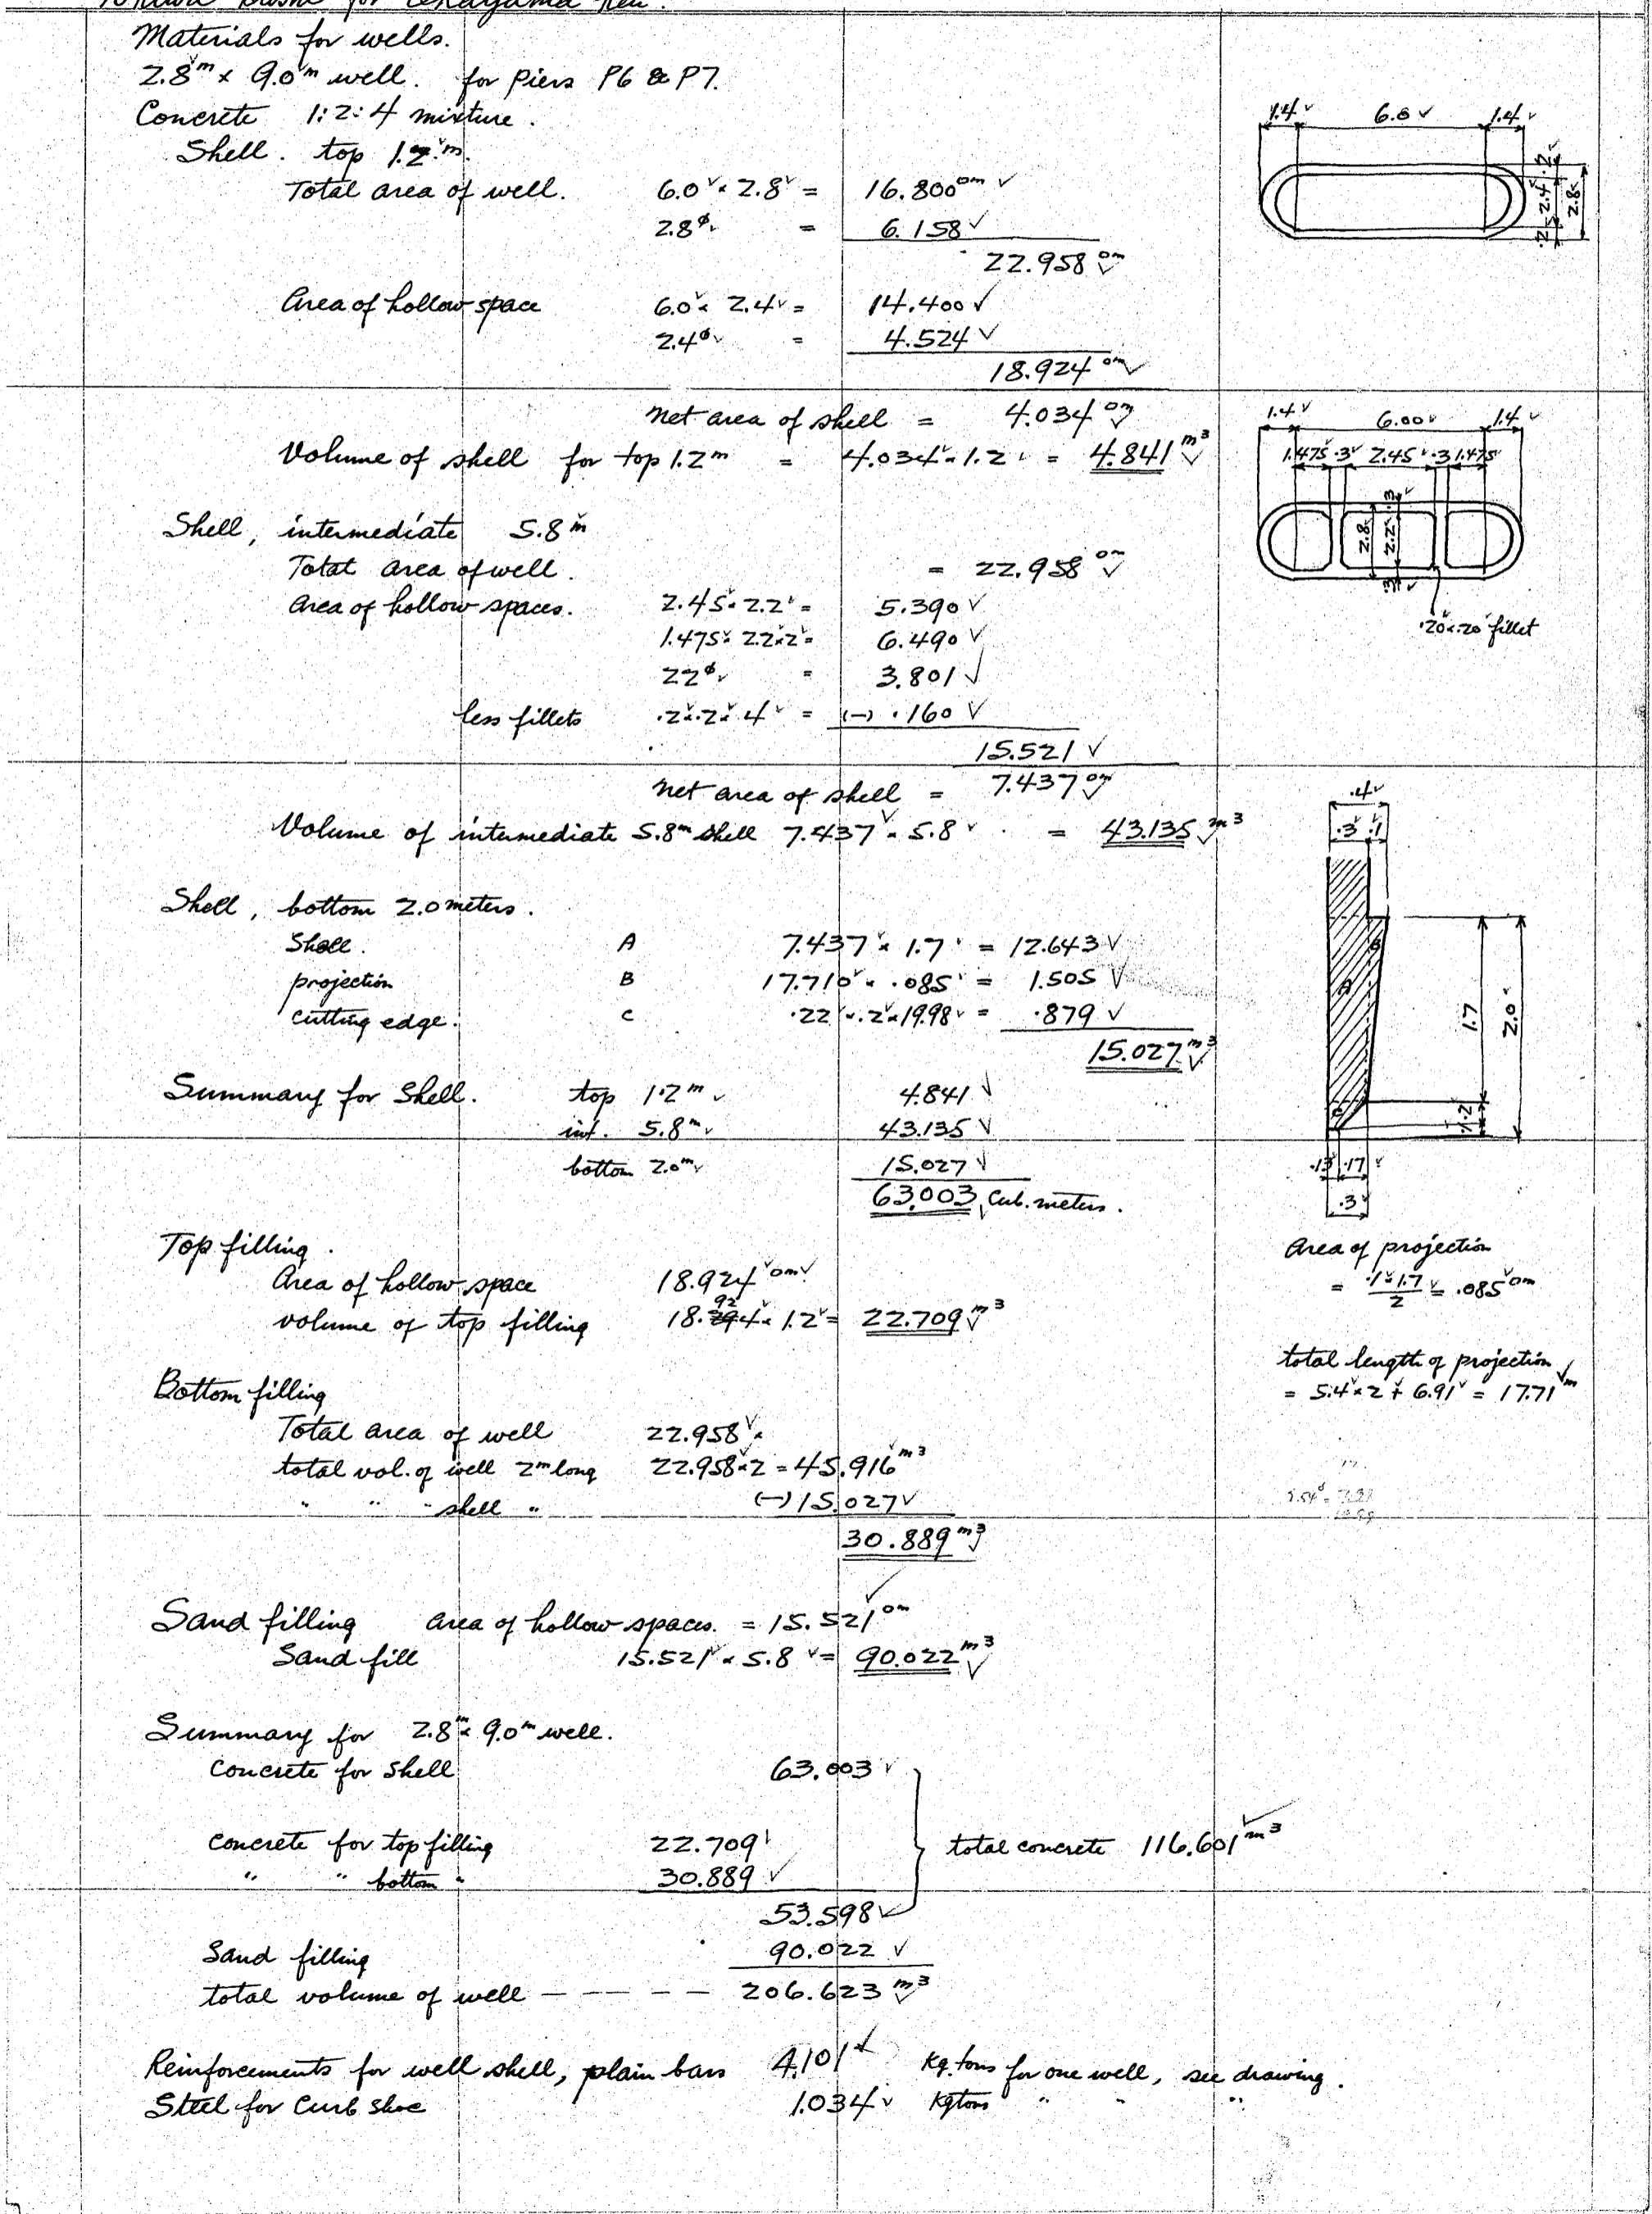 Bashi for Okayama Ken.
Materials for wells.
2.8m x 9.0m well. for Piers P6 & P7.
Concrete 1:2:4 mixture.
Shell. top 1.2m.
Total area of well. 6.0 x 2.8 = 16.800 □m
2.8ø = 6.158
22.958 □m
Area of hollow space 6.0 x 2.4 = 14.400
2.4ø = 4.524
18.924 □m
Net area of shell = 4.034 □m
Volume of shell for top 1.2m = 4.034 x 1.2 = 4.841 m3
Shell, intermediate 5.8m
Total area of well. = 22.958 □m
Area of hollow spaces. 2.45 x 2.2 = 5.390
1.475 x 2.2 x 2 = 6.490
22ø = 3.801
less fillets .2 x .2 x 4 = (-) .160
15.521
Net area of shell = 7.437 □m
Volume of intermediate 5.8m shell 7.437 x 5.8 = 43.135 m3
Shell, bottom 2.0 meters.
Shell. A 7.437 x 1.7 = 12.643
projection B 17.710 x .085 = 1.505
cutting edge. C .22 x .2 x 19.98 = .879
15.027 m3
Summary for Shell. top 1.2m 4.841
int. 5.8m 43.135
bottom 2.0m 15.027
63.003 Cub. meters.
Top filling.
Area of hollow space 18.924 □m
volume of top filling 18.924 x 1.2 = 22.709 m3
Bottom filling
Total area of well 22.958
total vol. of well 2m long 22.958 x 2 = 45.916 m3
" " " shell " (-) 15.027
30.889 m3
Sand filling area of hollow spaces. = 15.521 □m
Sand fill 15.521 x 5.8 = 90.022 m3
Summary for 2.8m x 9.0m well.
Concrete for Shell 63.003
Concrete for top filling 22.709
total concrete 116.601 m3
" " bottom " 30.889
53.598
Sand filling 90.022
total volume of well — — — — 206.623 m3
Reinforcements for well shell, plain bars 4.101 Kg. tons for one well, see drawing.
Steel for Curb Shoe 1.034 Kgtons " " "
1.4 6.0 1.4
.2 2.4 .2 2.8
1.4 6.00 1.4
1.475 .3 2.45 .3 1.475
.3 2.8 2.2 .3
.20 x .20 fillet
.4
.3 .1
B
A
C
1.7 2.0
.2
.13 .17
.3
Area of projection
= .1 x 1.7 / 2 = .085 □m
total length of projection
= 5.4 x 2 + 6.91 = 17.71 m